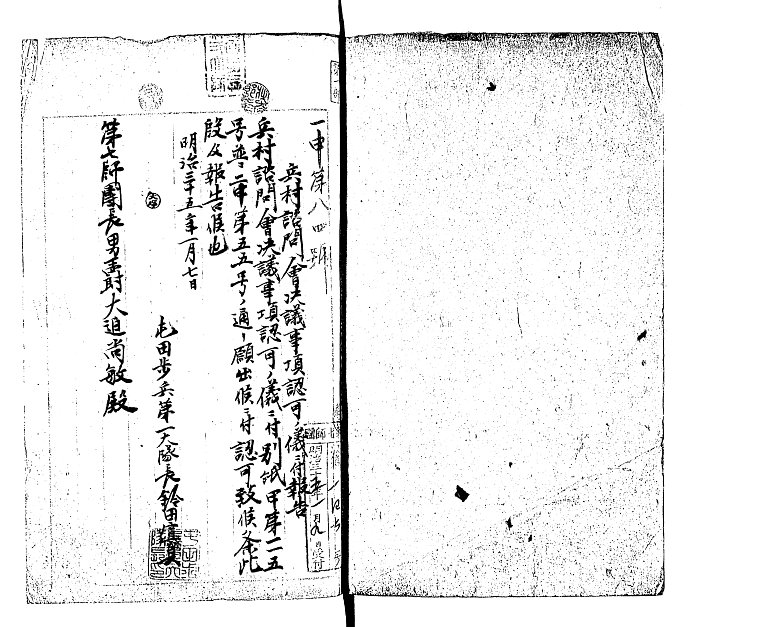 一甲第八四號
兵村諮問會決議事項認可ノ儀ニ付報告
兵村諮問會決議事項認可ノ儀ニ付別紙甲第一一五
号並ニ二甲第五五号ノ通リ願出候ニ付認可致候条此
段及報告候也
明治三十五年一月七日
屯田歩兵第一大隊長鈴田
第七師團長男爵大迫尚敏殿